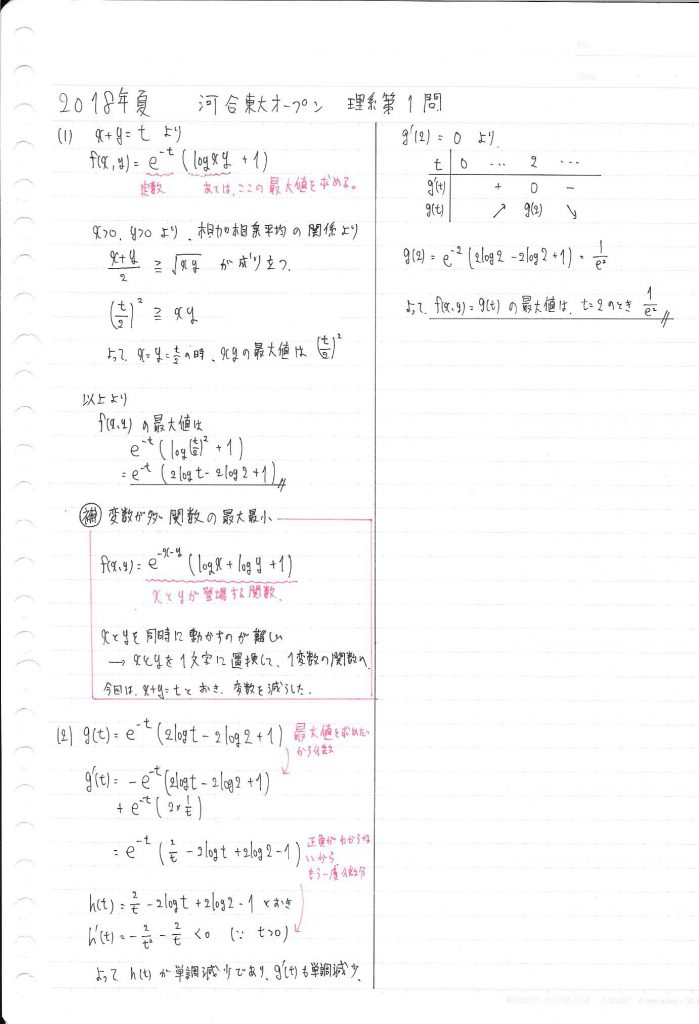 2018年夏 河合東大オープン 理系第1問
(1) x+y=t より
f(x,y)= e^{-t} (logxy +1)
定数 あては、ここの最大値を求める。
x>0, y>0 より、相加相乗平均の関係より
\frac{x+y}{2} ≧ \sqrt{xy} が成り立つ.
(\frac{t}{2})^2 ≧ xy
よって x=y=\frac{t}{2}の時、xyの最大値は (\frac{t}{2})^2
以上より
f(x,y) の最大値は
e^{-t} (log(\frac{t}{2})^2 +1)
= e^{-t} (2logt-2log2+1)
補 変数が多い関数の最大最小
f(x,y)= e^{-x-y} (logx+logy+1)
xとyが登場する関数.
xとyを同時に動かすのが難しい
→ xとyを1文字に置換して、1変数の関数へ
今回は、x+y=tとおき、変数を減らした.
(2) g(t)= e^{-t} (2logt-2log2+1) 最大値を求めたい
から微分
g'(t)= -e^{-t}(2logt-2log2+1)
+ e^{-t} (2×\frac{1}{t})
= e^{-t} (\frac{2}{t} -2logt+2log2-1) 正負がわからな
いから
もう一度微分
h(t)=\frac{2}{t} -2logt+2log2-1 とおき
h'(t)=-\frac{2}{t^2} -\frac{2}{t} <0 (∵ t>0)
よって h(t) が単調減少であり、g'(t)も単調減少.
g'(2)=0 より.
t 0 … 2 …
g'(t) + 0 -
g(t) ↗ g(2) ↘
g(2)= e^{-2} (2log2-2log2+1)= \frac{1}{e^2}
よって、f(x,y)=g(t) の最大値は、t=2のとき \frac{1}{e^2}